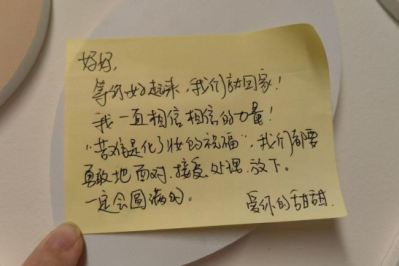 好好,
等你好起来,我们就回家!
我一直相信相信的力量!
"苦难是化了妆的祝福",我们都要
勇敢地面对.接受.处理.放下.
一定会圆满的.
爱你的甜甜.